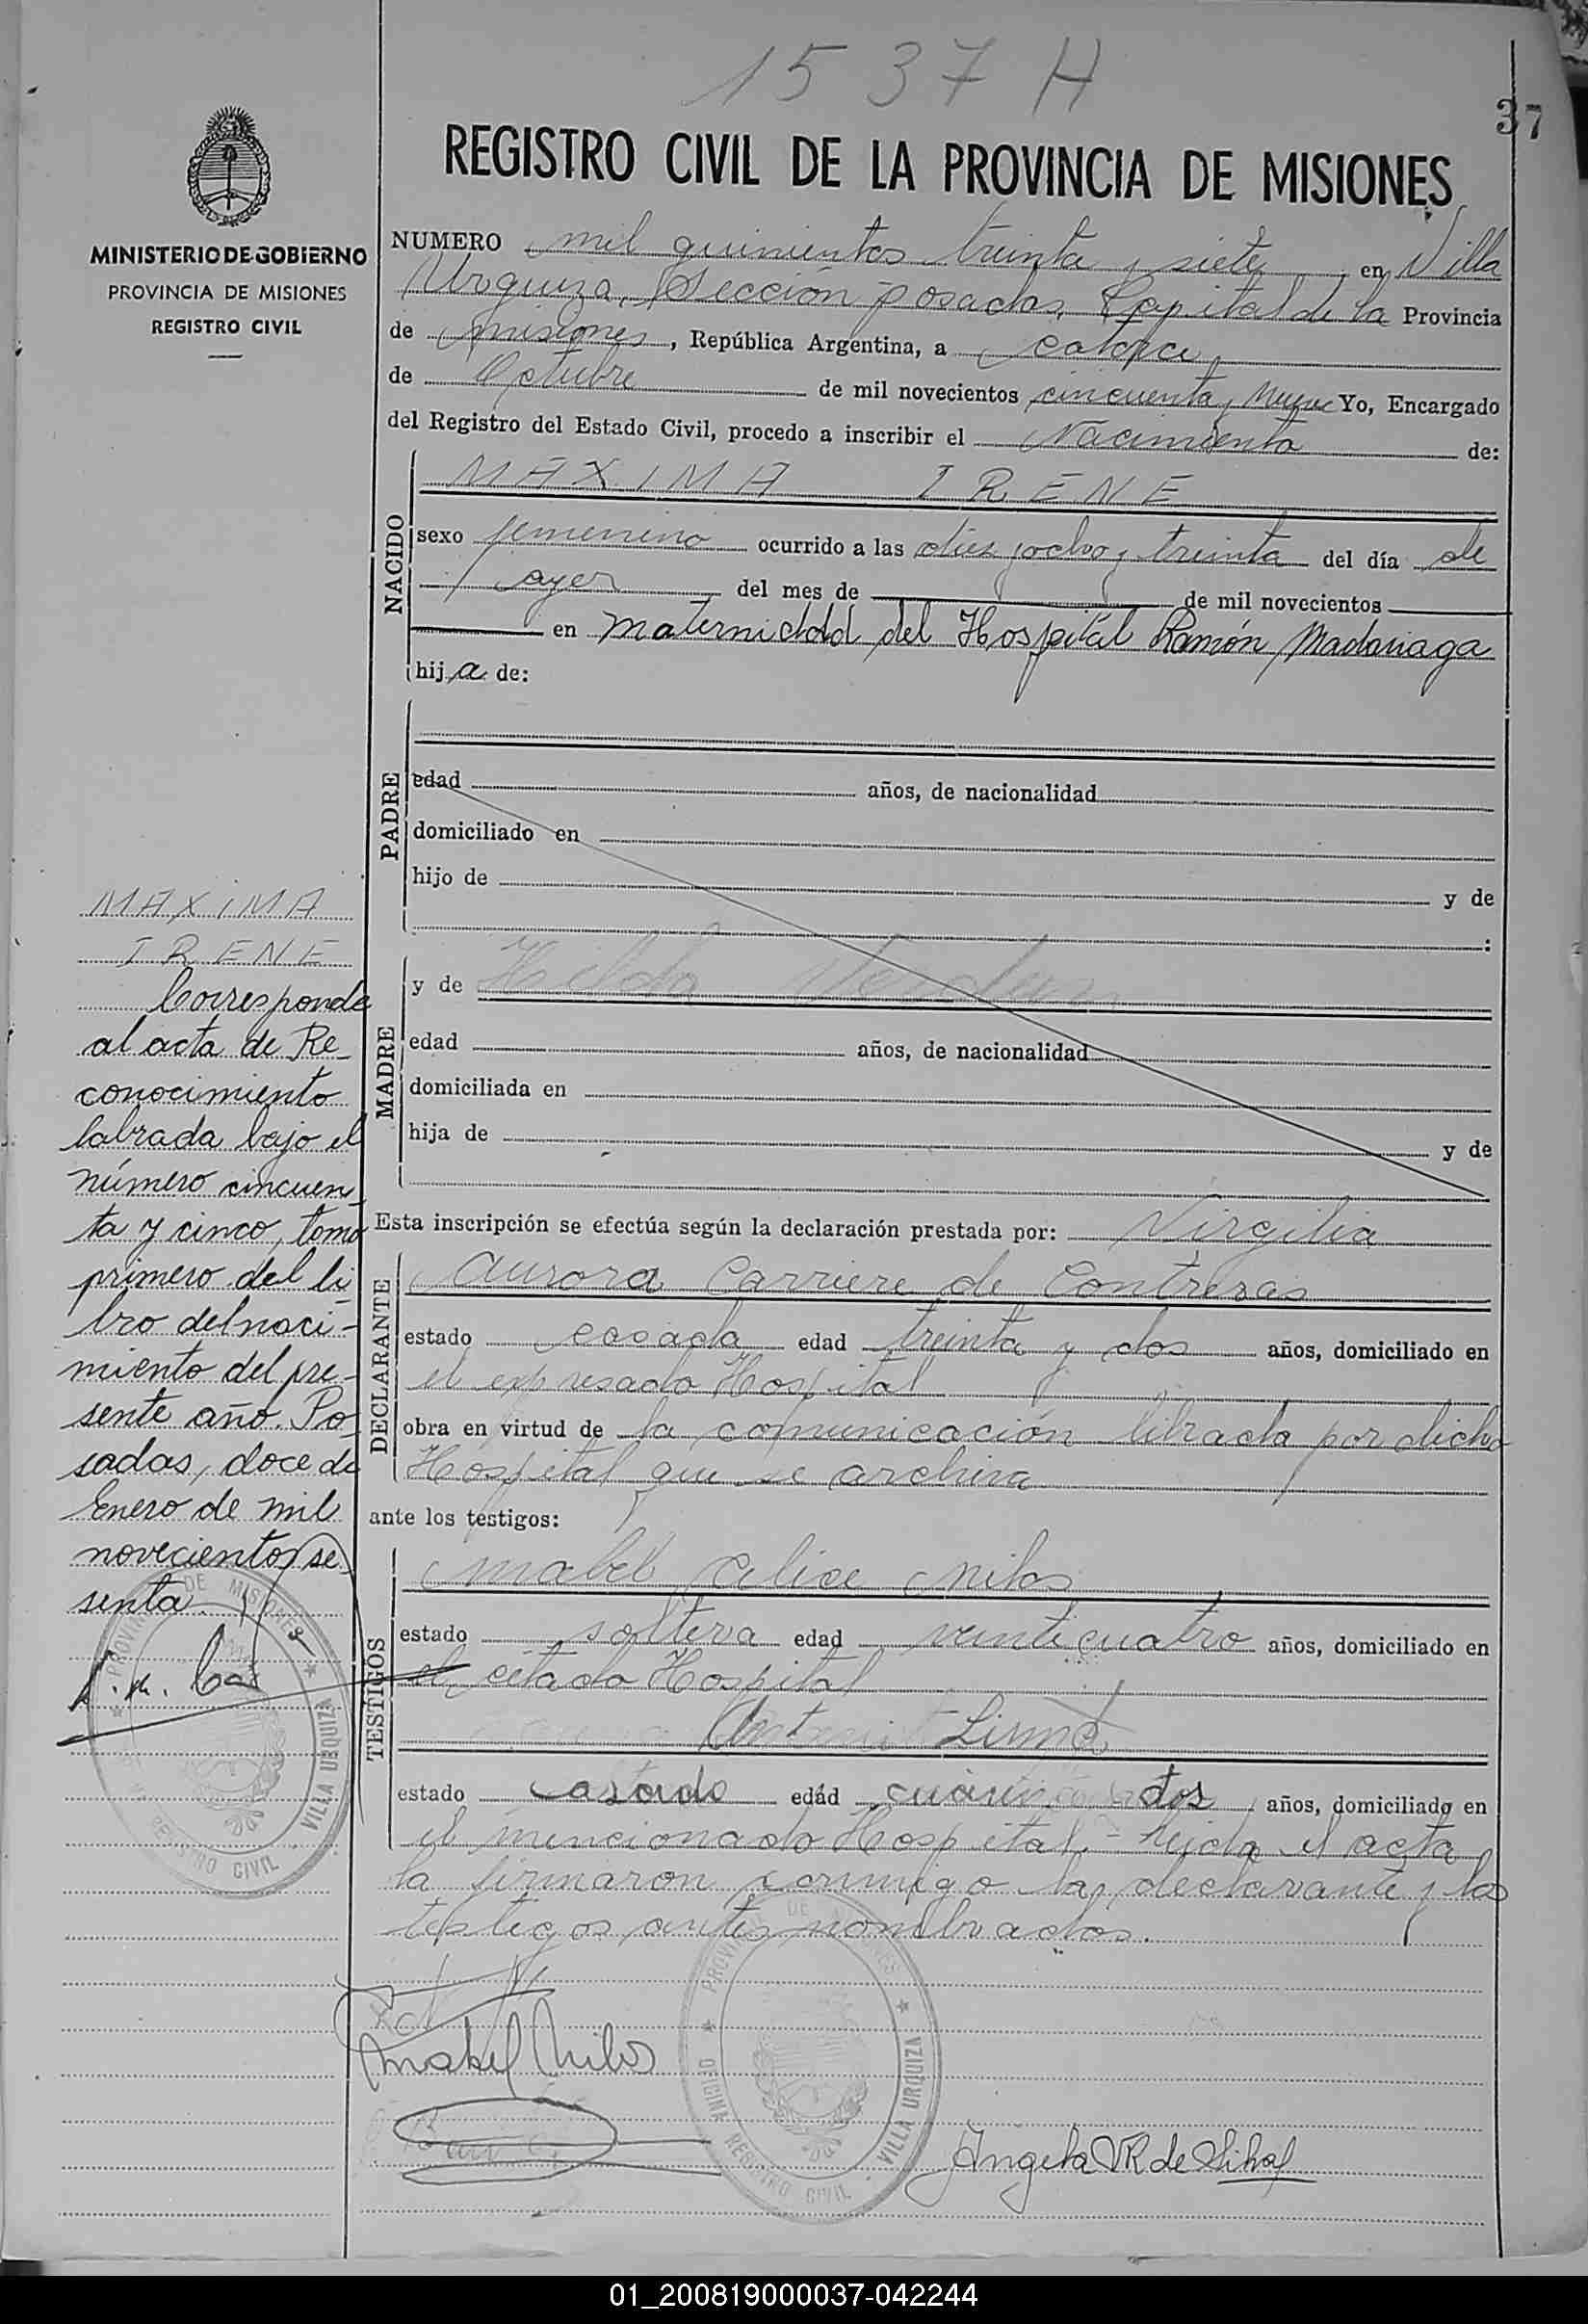 1537 H
37
REGISTRO CIVIL DE LA PROVINCIA DE MISIONES
MINISTERIO DE GOBIERNO
PROVINCIA DE MISIONES
REGISTRO CIVIL
NUMERO mil quinientos treinta y siete, en Villa
Urquiza, Sección Posadas, Capital de la Provincia
de Misiones, República Argentina, a catorce
de Octubre de mil novecientos cincuenta y nueve Yo, Encargado
del Registro del Estado Civil, procedo a inscribir el Nacimiento de:
NACIDO
MAXIMA IRENE
sexo femenino ocurrido a las diez y ocho y treinta del día de
ayer del mes de de mil novecientos
en Maternidad del Hospital Ramón Madariaga
hija de:
PADRE
edad años, de nacionalidad
domiciliado en
hijo de y de
:
MADRE
y de Hilda
edad años, de nacionalidad
domiciliada en
hija de y de
Esta inscripción se efectúa según la declaración prestada por: Virgilia
DECLARANTE
Aurora Carriere de Contreras
estado casada edad treinta y dos años, domiciliado en
el expresado Hospital
obra en virtud de la comunicación librada por dicho
Hospital que se archiva
ante los testigos:
TESTIGOS
Mabel Celice Milos
estado soltera edad veinticuatro años, domiciliado en
el citado Hospital
estado casado edad años, domiciliado en
el mencionado Hospital.- Leida el acta
la firmaron conmigo la declarante y los
testigos antes nombrados.
Mabel Milos
Angela VR de
MAXIMA
IRENE
Corresponde
al acta de Re-
conocimiento
labrada bajo el
número cincuen
ta y cinco, tomo
primero del li
bro del naci-
miento del pre-
sente año. Po-
sadas, doce de
Enero de mil
novecientos se
senta.
PROVINCIA DE MISIONES
VILLA URQUIZA
REGISTRO CIVIL
PROVINCIA DE MISIONES
OFICINA REGISTRO CIVIL
VILLA URQUIZA
01_200819000037-042244